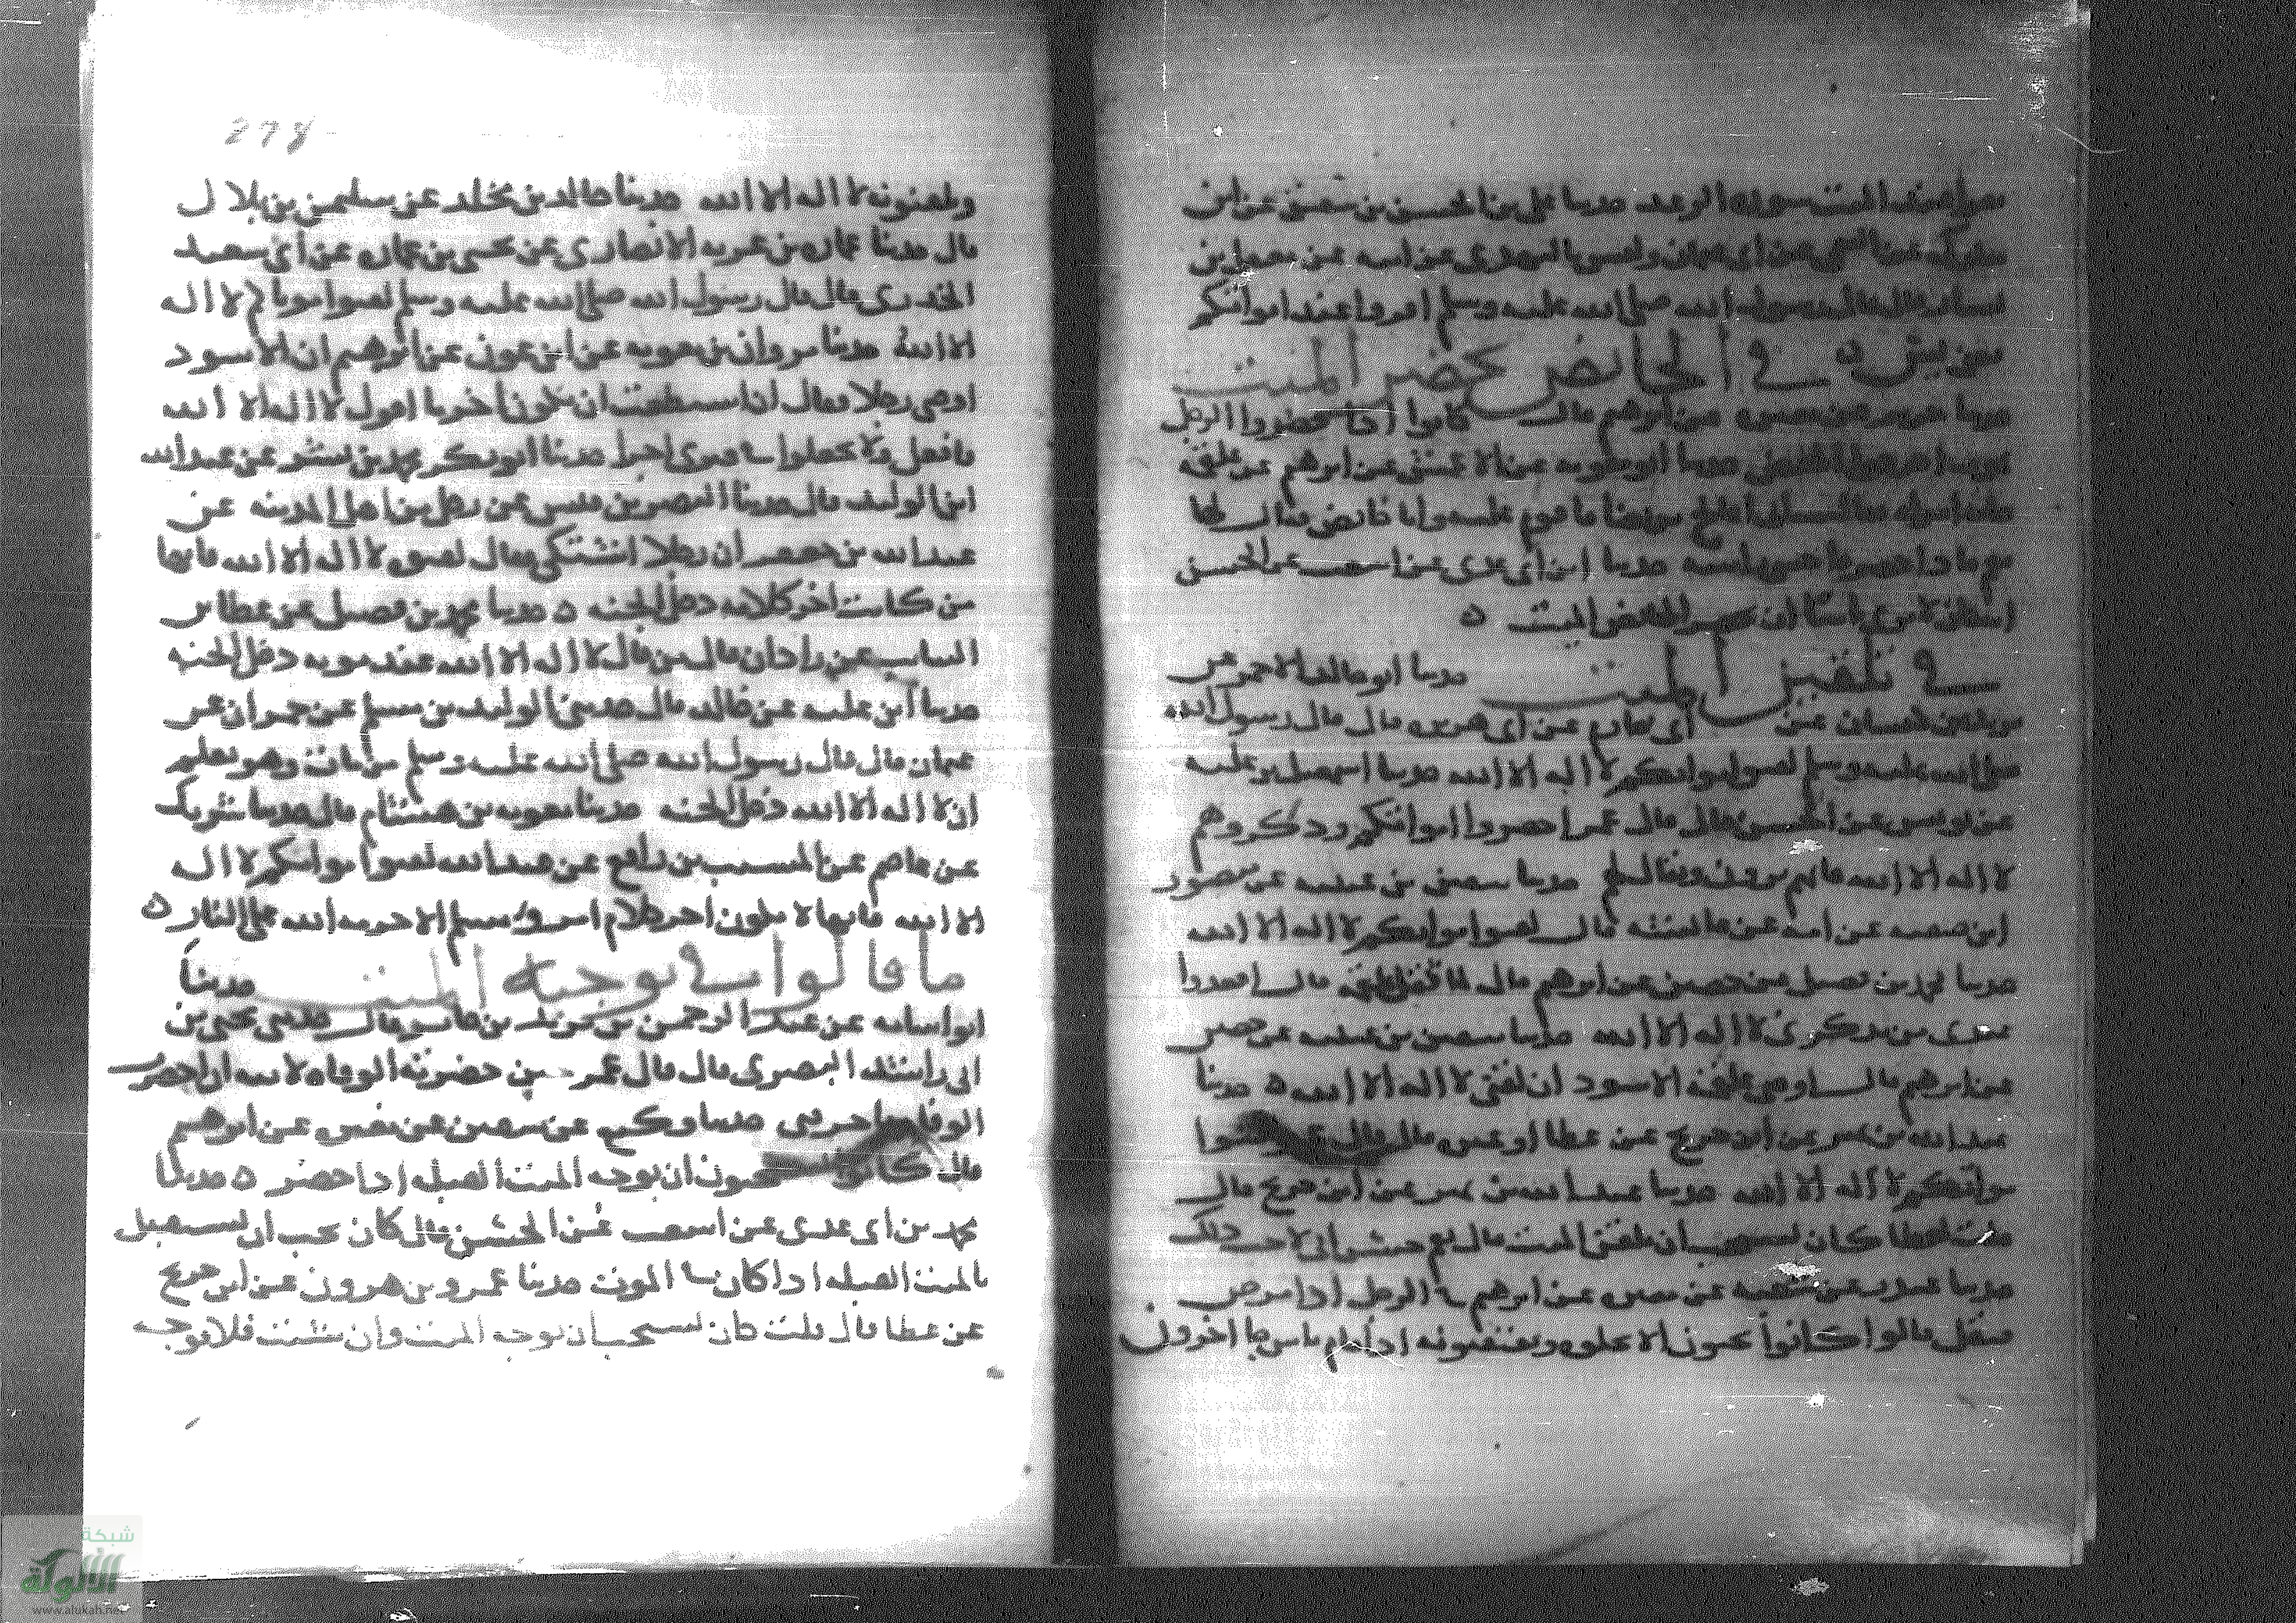 عند الميت سورة الرعد حدثنا علي بن الحسن بن شقيق عن ابن
عن التيمي عن ابي عثمن وليس بالنهدي عن ابيه عن معقل بن
يسار قال قال رسول الله صلى الله عليه وسلم اقروا عند امواتكم
يعني يس ٥ في الحائض تحضر الميت
حدثنا جرير عن منصور عن ابرهيم قال كانوا اذا حضروا الرجل
حدثنا ابو معويه عن الاعمش عن ابرهيم عن علقمه
عليه وانا حائض فقال لها
حدثنا ابن ابي عدي عن اشعث عن الحسن
انه كان لا يرى باسا ان تحضر الحائض الميت ٥
في تلقين الميت حدثنا ابو خالد الاحمر عن
يزيد بن كيسان عن ابي حازم عن ابي هريره قال قال رسول الله
صلى الله عليه وسلم لقنوا موتاكم لا اله الا الله حدثنا اسمعيل بن عليه
عن يونس عن الحسن قال قال عمر احضروا امواتكم وذكروهم
لا اله الا الله فانهم يرون ويقال لهم حدثنا سفين بن عيينه عن منصور
ابن صفيه عن امه عن عائشه قال لقنوا امواتكم لا اله الا الله
حدثنا محمد بن فضيل عن حصين عن ابرهيم قال لما ثقل علقمه قال اقعدوا
عندي من يذكرني لا اله الا الله حدثنا سفين بن عيينه عن حصين
عن ابرهيم قال اوصى علقمه الاسود ان لقني لا اله الا الله ٥ حدثنا
عبد الله بن نمير عن ابن جريج عن عطا او عمن قال قال عمر لقنوا
موتاكم لا اله الا الله حدثنا عبد الله بن نمير عن ابن جريج قال
قلت لعطا كان يستحب ان يلقن الميت قال نعم حسن اني لاحب ذلك
حدثنا غندر عن شعبه عن مغيره عن ابرهيم في الرجل اذا مرض
فثقل قالوا كانوا يحبون الا يخلوه ويعتقبونه اذا قام ناس جا اخرون
278
ويلقنونه لا اله الا الله حدثنا خالد بن مخلد عن سليمن بن بلال
قال حدثنا عماره بن غزيه الانصاري عن يحيى بن عماره عن ابي سعيد
الخدري قال قال رسول الله صلى الله عليه وسلم لقنوا موتاكم لا اله
الا الله حدثنا مروان بن معويه عن ابن عون عن ابرهيم ان الاسود
اوصى رجلا فقال ان استطعت ان يكون اخر ما اقول لا اله الا الله
فافعل ولا تجعلوا في قبري اجرا حدثنا ابو بكر محمد بن بشر عن عبد الله
ابن الوليد قال حدثنا النضر بن قيس عن رجل من اهل المدينه عن
عبد الله بن جعفر ان رجلا اشتكى فقال لقنوني لا اله الا الله فانها
من كانت اخر كلامه دخل الجنه ٥ حدثنا محمد بن فضيل عن عطا بن
السايب عن زاذان قال من قال لا اله الا الله عند موته دخل الجنه
حدثنا ابن عليه عن خالد قال حدثني الوليد بن مسلم عن حمران عن
عثمان قال قال رسول الله صلى الله عليه وسلم من مات وهو يعلم
ان لا اله الا الله دخل الجنه حدثنا معويه بن هشام قال حدثنا شريك
عن عاصم عن المسيب بن رافع عن عبد الله لقنوا موتاكم لا اله
الا الله فانها لا يكون اخر كلام امرئ مسلم الا حرمه الله على النار ٥
ما قالوا في توجيه الميت حدثنا
ابو اسامه عن عبد الرحمن بن يزيد بن جابر قال حدثني يحيى بن
ابي راشد البصري قال قال عمر حين حضرته الوفاه لابنه اذا حضرت
الوفاه فاحرفني حدثنا وكيع عن سفين عن مغيره عن ابرهيم
قال كانوا يستحبون ان يوجه الميت القبله اذا حضر ٥ حدثنا
محمد بن ابي عدي عن اشعث عن الحسن قال كان يحب ان يستقبل
بالميت القبله اذا كان في الموت حدثنا عمر بن هرون عن ابن جريج
عن عطا قال قلت كان يستحب ان يوجه الميت وان شئت فلا توجه
شبكة
الألوكة
www.alukah.net